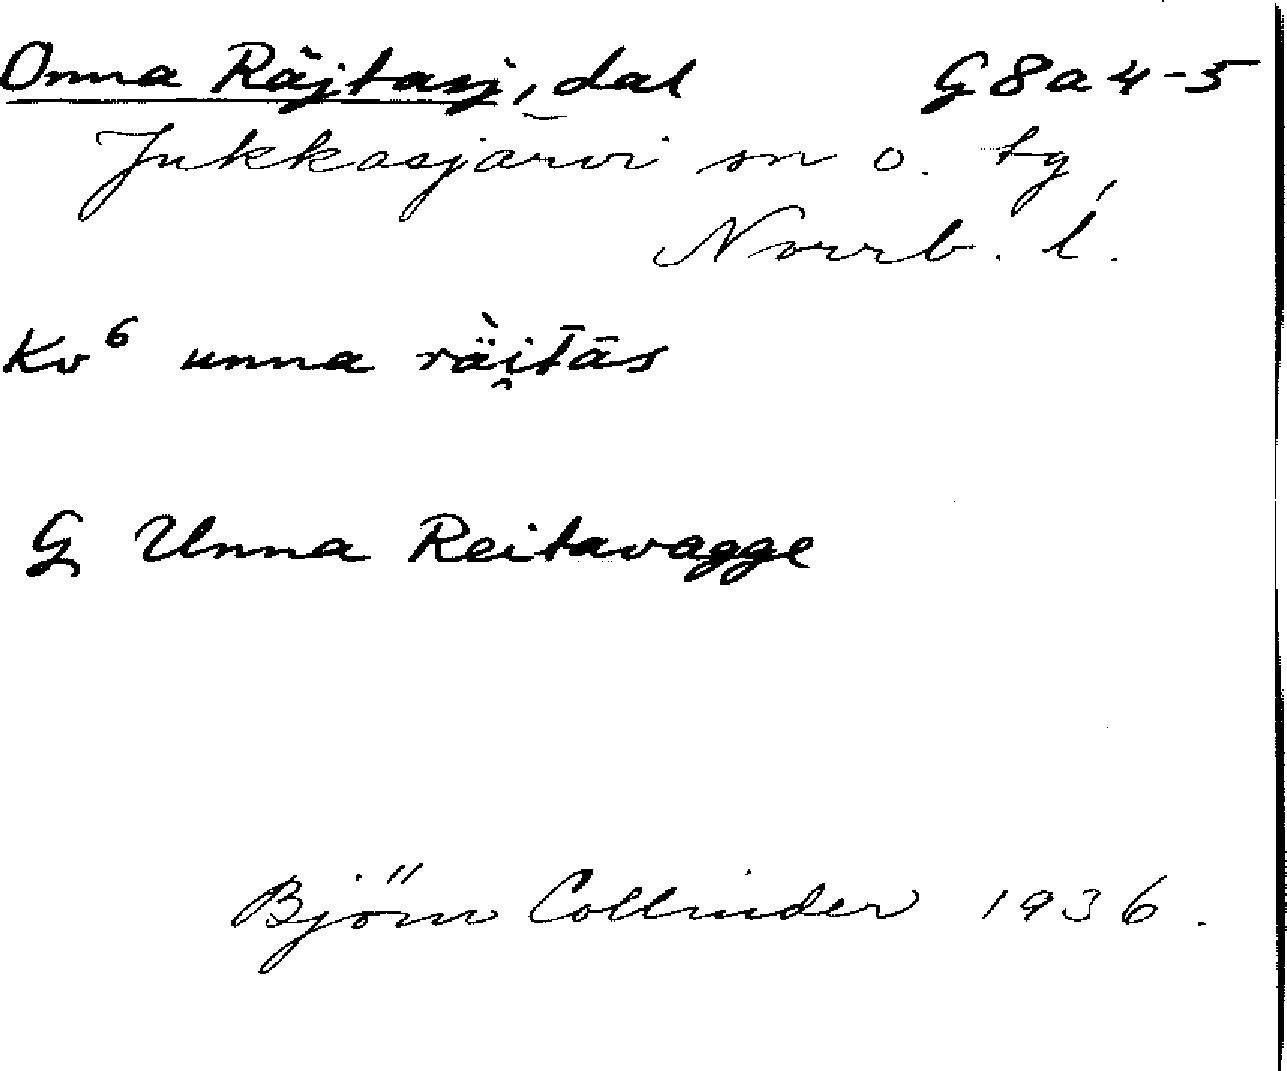 Onna Räjtasj, dal G8a4-5
Jukkasjärvi sn o. tg,
Norrb. l.
Kv⁶ unna rä̀i̯t̄ās
G Unna Reitavagge
Björn Collinder 1936.